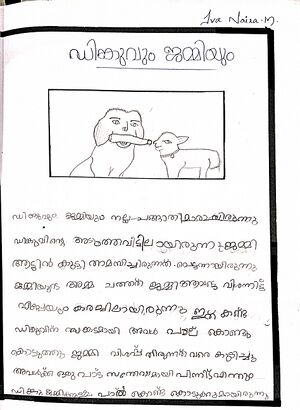 Iva Naiza.M.
ഡിങ്കുവും ജമ്മിയും
ഡിങ്കുവും ജമ്മിയും നല്ല ചങ്ങാതിമാരായിരുന്നു
ഡിങ്കുവിന്റെ അടുത്തവീട്ടിലായിരുന്നു ജമ്മി
ആട്ടിൻ കുട്ടി താമസിച്ചിരുന്നത്
ജമ്മിയുടെ അമ്മ ചത്തതിന് ജമ്മി
കരച്ചിലായിരുന്നു ഇത് കണ്ട
ഡിങ്കുവിന് സങ്കടമായി അവൻ പാല് കൊണ്ടു
കൊടുത്തു ജമ്മി വിശപ്പ് തീരുന്നത് വരെ കുടിച്ചു
അവൾക്ക് ഒരുപാട് സന്തോഷമായി പിന്നീട് എന്നും
ഡിങ്കു ജമ്മിക്ക് പാൽ കൊണ്ട് കൊടുക്കുമായിരുന്നു